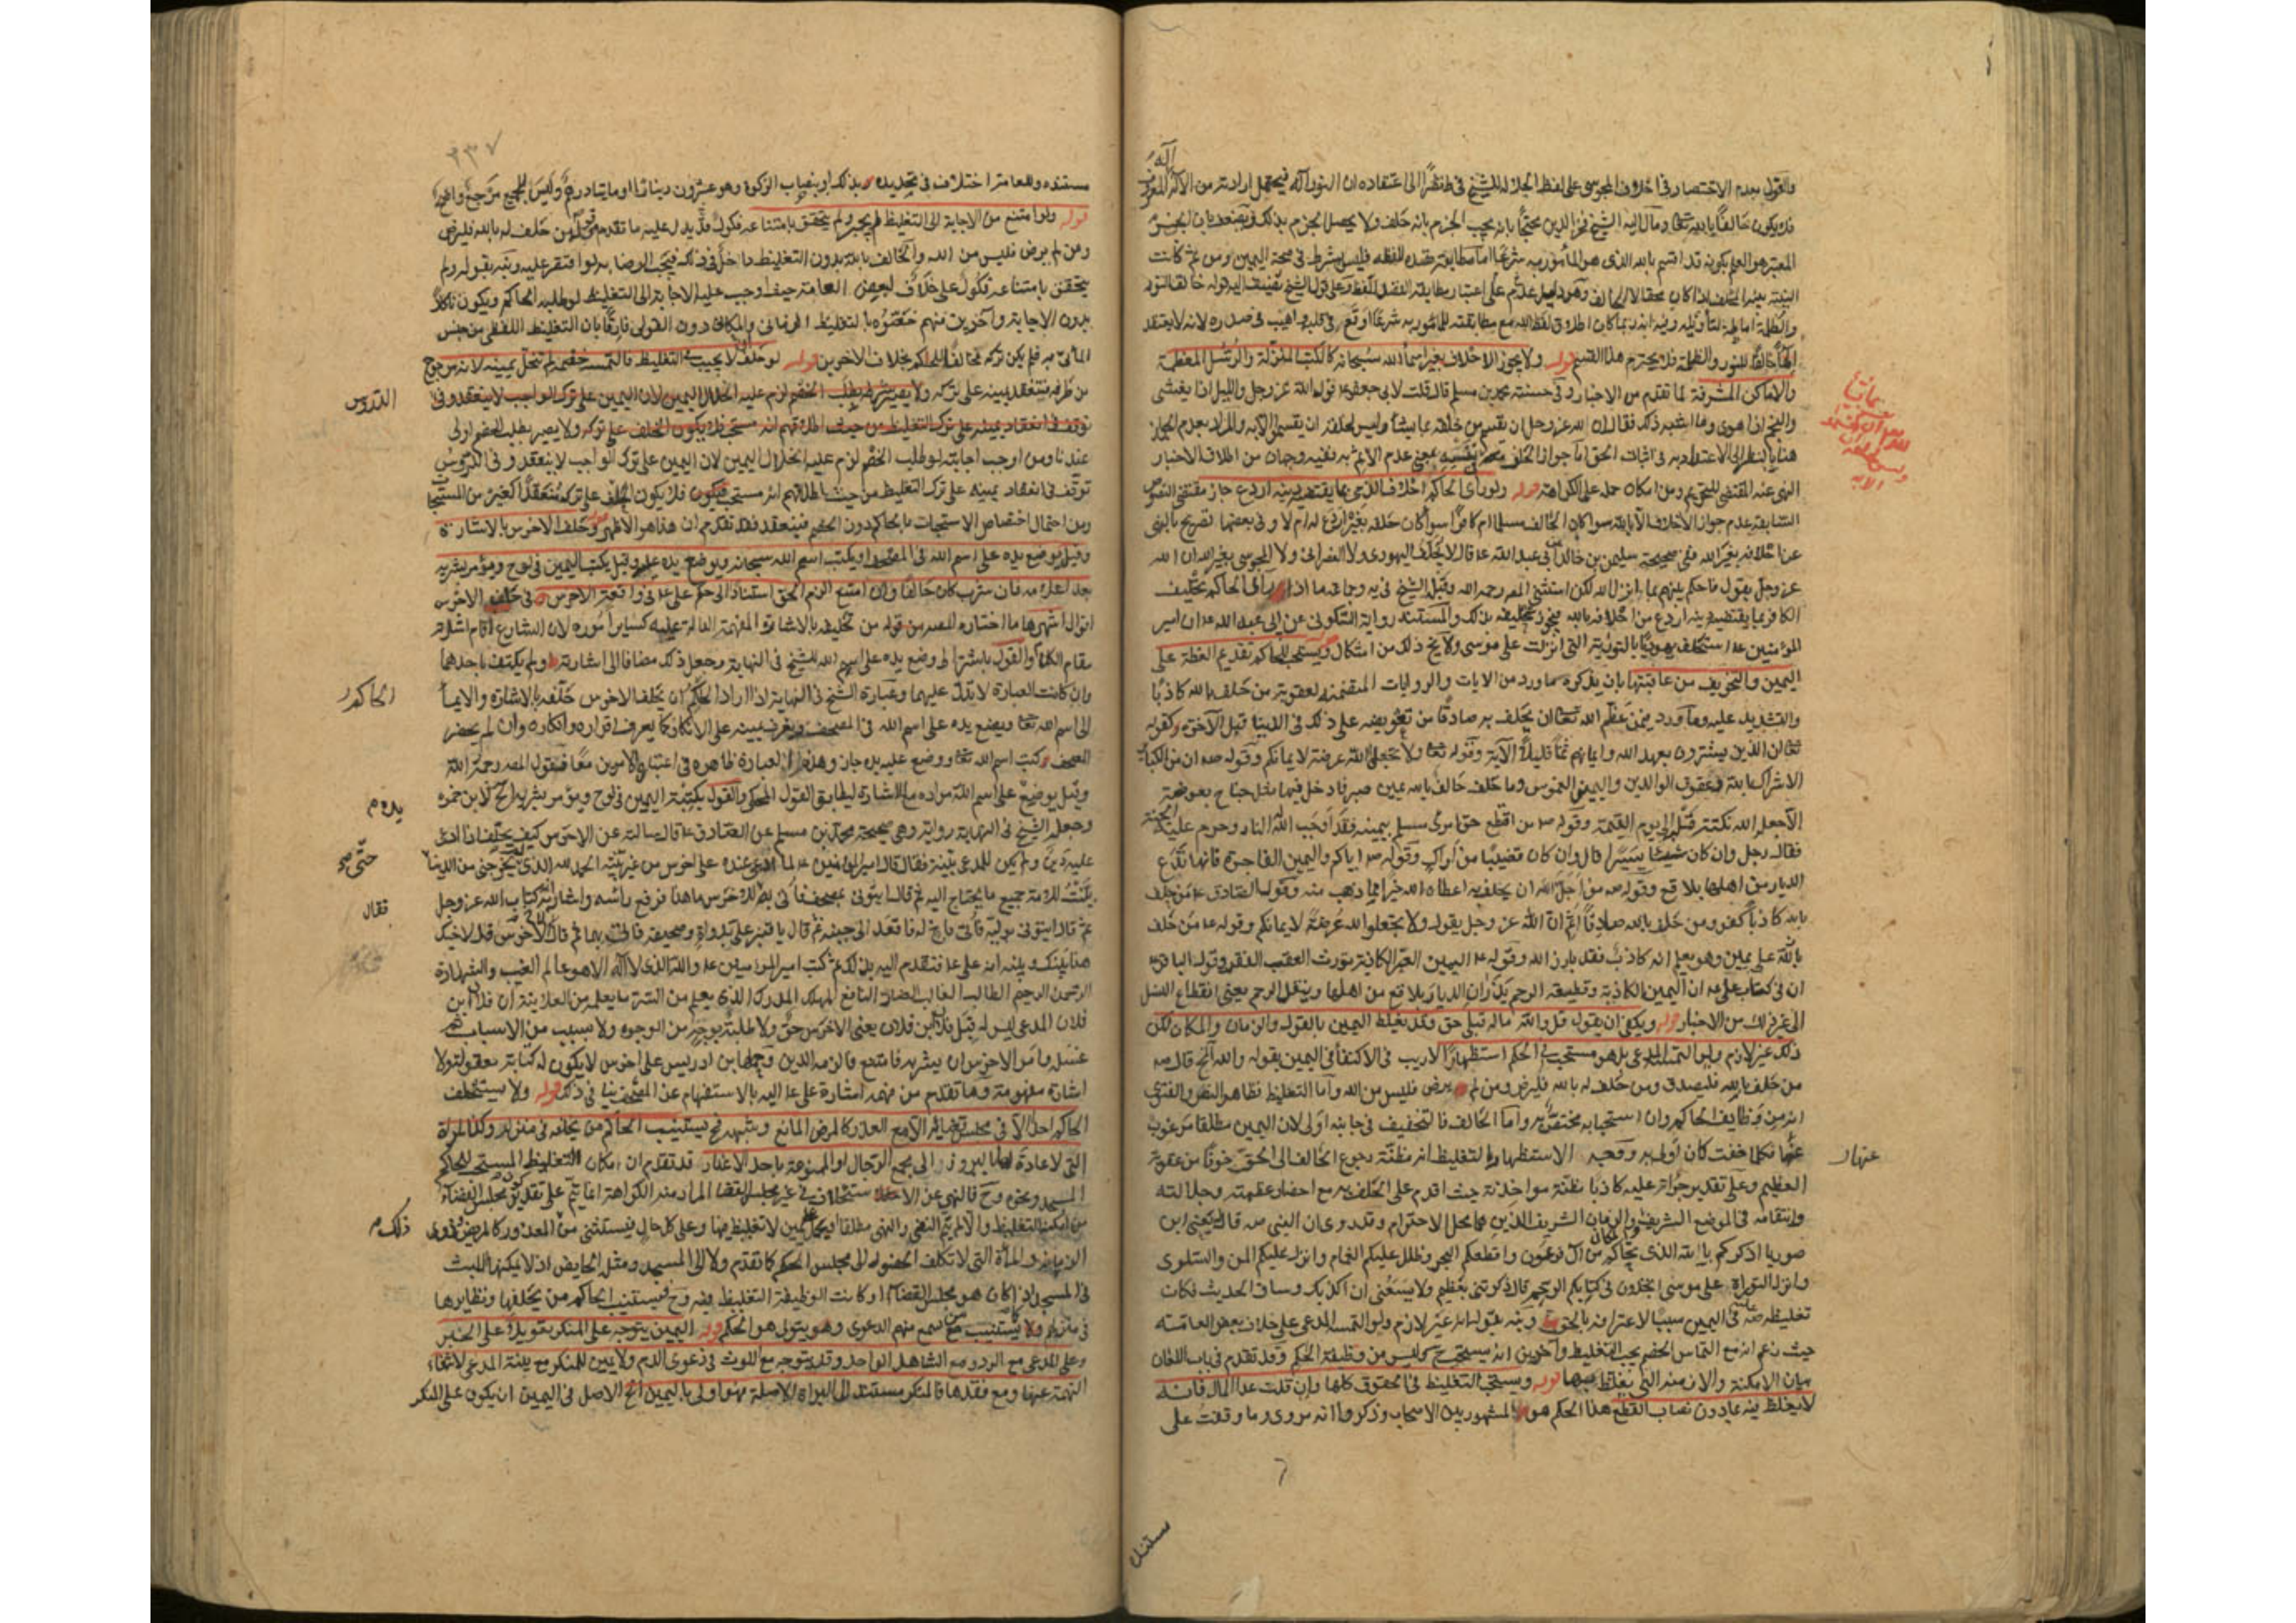 والقول بعدم الاقتصار في احلاف المجوسي على لفظ الجلالة للشيخ في ط نظرًا الى اعتقاده ان النور اله فيحتمل ارادته من الاله المعرف
فلا يكون حالفًا بالله تعا ومال اليه الشيخ فخر الدين محتجًا بانه يجب الجزم بانه حلف ولا يحصل الجزم بذلك
المعتبر هو العلم بكونه قد اقسم بالله الذي هو المأمور به شرعًا اما مطابقة قصده للفظه فليس بشرط في صحة اليمين ومن ثم كانت
النية نية المحلف اذا كان محقا لا الحالف وهو دليل على عدم اعتبار مطابقة القصد اللفظ وعلى قول الشيخ يضيف اليه قوله خالق النور
والظلمة اماطة لتأويله
خالق النور والظلمة فلا يحترم هذا القسم قوله ولا يجوز الاحلاف بغير اسماء الله سبحانه كالكتب المنزلة والرسل المعظمة
والاماكن المشرفة لما تقدم من الاخبار وفي حسنة محمد بن مسلم قال قلت لابي جعفر ع قول الله عز وجل والليل اذا يغشى
والنجم اذا هوى وما اشبه ذلك فقال ان الله عز وجل ان يقسم من خلقه بما يشاء وليس لخلقه ان يقسموا الا به والمراد بعدم الجواز
هنا بالنظر الى الاعتداد به في اثبات الحق اما جواز الحلف في نفسه بمعنى عدم الاثم به ففيه وجهان من اطلاق الاخبار
النهي عنه المقتضي للتحريم ومن امكان حمله على الكراهة قوله ولو رأى الحاكم احلاف الذمي بما يقتضيه دينه اردع جاز مقتضى النصوص
السابقة عدم جواز الاحلاف الا بالله سواء كان الحالف مسلما ام كافرًا وسواء كان حلفه بغيره اردع له ام لا وفي بعضها تصريح بالنهي
عن احلافه بغير الله ففي صحيحة سليمن بن خالد عن ابي عبد الله ع قال لا يحلف اليهودي ولا النصراني ولا المجوسي بغير الله ان الله
عز وجل يقول فاحكم بينهم بما انزل الله لكن استثنى المصر رحمه الله وقبله الشيخ في يه وجماعة ما اذا رأى الحاكم تحليف
الكافر بما يقتضيه دينه اردع من احلافه بالله فيجوز تحليفه بذلك والمستند رواية السكوني عن ابي عبد الله ع ان امير
المؤمنين ع استحلف يهوديًا بالتورية التي انزلت على موسى ولا يخ ذلك من اشكال قوله ويستحب للحاكم تقديم العظة على
اليمين والتخويف من عاقبتها بان يذكره بما ورد من الايات والروايات المتضمنة لعقوبة من حلف بالله كاذبًا
والتشديد عليه وما ورد فيمن عظم الله تعا ان يحلف به صادقًا من تعويضه على ذلك في الدنيا قبل الآخرة كقوله
تعا ان الذين يشترون بعهد الله وايمانهم ثمنًا قليلًا الآية وقوله تعا ولا تجعلوا الله عرضة لايمانكم وقوله ص ان من الكبائر
الاشراك بالله وعقوق الوالدين واليمين الغموس وما حلف حالف بالله يمين صبر فادخل فيها مثل جناح بعوضة
الا جعله الله نكتة في قلبه الى يوم القيمة وقوله ص من اقتطع حق امرئ مسلم بيمينه فقد اوجب الله له النار وحرم عليه الجنة
فقال رجل وان كان شيئًا يسيرًا قال وان كان قضيبًا من اراك وقوله ص اياكم واليمين الفاجرة فانها تدع
الديار من اهلها بلاقع وقوله ص من اجل الله ان يحلف به اعطاه الله خيرا مما ذهب منه وقول الصادق ع من حلف
بالله كاذبًا كفر ومن حلف بالله صادقًا اثم ان الله عز وجل يقول ولا تجعلوا الله عرضة لايمانكم وقوله ع من حلف
بالله على يمين وهو يعلم انه كاذب فقد بارز الله وقوله ع اليمين الصبر الكاذبة تورث العقب الفقر وقول الباقر ع
ان في كتاب علي ع ان اليمين الكاذبة وقطيعة الرحم يذران الديار بلاقع من اهلها وينغل الرحم يعني انقطاع النسل
الى غير ذلك من الاخبار قوله ويكفي ان يقول قل والله ماله قبلي حق وقد يغلظ اليمين بالقول والزمان والمكان لكن
ذلك غير لازم ولو التمسه المدعي بل هو مستحب في الحكم استظهارًا لا ريب في الاكتفاء في اليمين بقوله والله الخ قال ص
من حلف بالله فليصدق ومن حلف له بالله فليرض ومن لم يرض فليس من الله واما التغليظ فظاهر النص والفتوى
انه من وظايف الحاكم وان استحبابه مختص به واما الحالف فالتخفيف في جانبه اولى لان اليمين مطلقا مرغوب
عنها فكلما خفت كان اولى ووجه الاستظهار بالتغليظ انه مظنة رجوع الحالف الى الحق خوفا من عقوبة
العظيم وعلى تقدير جرأته عليه كاذبًا مظنة مواخذته حيث اقدم على الحلف به مع احضار عظمته وجلالته
وانتقامه في الموضع الشريف والزمان الشريف الذين هما محل الاحترام وقد روى ان النبي ص قال
صوريا اذكركم بالله الذي نجاكم من آل فرعون واقطعكم البحر وظلل عليكم الغمام وانزل عليكم المن والسلوى
وانزل التوراة على موسى اتجدون في كتابكم الرجم قال ذكرتني بعظيم ولا يسعني ان اكذبك وساق الحديث فكان
تغليظه ص في اليمين سببًا لاعترافه بالحق ونبه بقوله انه غير لازم ولو التمسه المدعي على خلاف بعض العامة
حيث زعم انه مع التماس الخصم يجب التغليظ وآخرين انه ليس من وظيفة الحكم وقد تقدم في باب اللعان
بيان الامكنة والازمنة التي يغلظ بها قوله ويستحب التغليظ في الحقوق كلها وان قلت عدا المال فانه
لا يغلظ فيه بما دون نصاب القطع هذا الحكم هو المشهور بين الاصحاب وذكروا انه مروى وما وقفت على
عنهار
٣٣٧
مستنده وللعامة اختلاف في تحديده بذلك او بنصاب الزكوة وهو عشرون دينارًا او مايتا درهم وليس للجميع مرجح واضح
قوله ولو امتنع من الاجابة الى التغليظ لم يجبر ولم يتحقق بامتناعه نكول قد يدل عليه ما تقدم من قوله من حلف له بالله فليرض
ومن لم يرض فليس من الله والحالف بالله بدون التغليظ داخل في ذلك فيجب الرضا به لو اقتصر عليه ونبه بقوله ولم
يتحقق بامتناعه نكول على خلاف لبعض العامة حيث اوجب عليه الاجابة الى التغليظ لو طلبه الحاكم ويكون ناكلا
بدون الاجابة وآخرين منهم خصوه بالتغليظ الزماني والمكاني دون القولي فارقًا بان التغليظ اللفظي من جنس
المأتي به فلم يكن تركه مخالفًا للحاكم بخلاف الاخرين قوله لو حلف ان لا يجيب الى التغليظ فالتمسه خصمه لم تنحل يمينه لانه مرجوح
من طرفه فتنعقد يمينه على تركه
عندنا ومن اوجب اجابته لو طلب الخصم لزم عليه انحلال اليمين لان اليمين على ترك الواجب لا ينعقد وفي الدروس
توقف في انعقاد يمينه على ترك التغليظ من حيث اطلاقهم انه مستحب فلا يكون الحلف على تركه منعقدًا كغيره من المستحبات
ومن احتمال اختصاص الاستحباب بالحاكم دون الخصم فينعقد فقد تقدم ان هذا هو الاظهر قوله وحلف الاخرس بالاشارة
وقيل يوضع يده على اسم الله في المصحف او يكتب اسم الله سبحانه ويوضع يده عليه وقيل يكتب اليمين في لوح ويؤمر بشربه
بعد اعلامه فان شرب كان حالفًا وان امتنع الزم الحق استنادًا الى حكم علي ع في واقعة الاخرس في حلف الاخرس
اقوال اشهرها ما اختاره المصر من تحليفه بالاشارة المفهمة الدالة عليه كساير اموره لان الشارع اقام اشارته
مقام الكلام والقول باشتراط وضع يده على اسم الله للشيخ في النهاية وجعل ذلك مضافا الى اشارته ولم يكتف باحدهما
وان كانت العبارة لا تدل عليهما وعبارة الشيخ في النهاية اذا اراد الحاكم ان يحلف الاخرس حلفه بالاشارة والايماء
الى اسم الله تعا ويضع يده على اسم الله في المصحف ويعرف يمينه على الانكار كما يعرف اقراره وانكاره وان لم يحضر
المصحف وكتب اسم الله تعا ووضع عليه يده جاز وهذه العبارة ظاهرة في اعتبار الامرين معًا فقول المصر رحمه الله
وقيل يوضع على اسم الله مراده مع الاشارة ليطابق القول المحكي والقول بكتبة اليمين في لوح ويؤمر بشربه الخ لابن حمزة
وجعله الشيخ في النهاية رواية وهي صحيحة محمد بن مسلم عن الصادق ع قال سالته عن الاخرس كيف يحلف اذا ادعي
عليه دين ولم يكن للمدعي بينة فقال ان امير المؤمنين ع لما ادعي عنده على اخرس من غير بينة الحمد لله الذي لم يخرجني من الدنيا
بينت للامة جميع ما يحتاج اليه ثم قال ايتوني بمصحف فاتي به فقال للاخرس ما هذا فرفع راسه واشار انه كتاب الله عز وجل
ثم قال ايتوني بوليه فاتي باخ له فاقعده الى جنبه ثم قال يا قنبر علي بدواة وصحيفة فاتاه بهما ثم قال لاخي الاخرس قل لاخيك
هذا بينك وبينه انه علي ع فتقدم اليه بذلك ثم كتب امير المؤمنين ع والله الذي لا اله الا هو عالم الغيب والشهادة
الرحمن الرحيم الطالب الغالب الضار النافع المهلك المدرك الذي يعلم من السر ما يعلم من العلانية ان فلان بن
فلان المدعي ليس له قبل فلان بن فلان يعني الاخرس حق ولا طلبة بوجه من الوجوه ولا سبب من الاسباب ثم
غسله وامر الاخرس ان يشربه فامتنع فالزمه الدين وحملها ابن ادريس على اخرس لا يكون له كتابة معقولة ولا
اشارة مفهومة وما تقدم من فهمه اشارة علي ع اليه بالاستفهام عن المصحف ينافي ذلك قوله ولا يستحلف
الحاكم احدًا الا في مجلس قضائه الا مع العذر كالمرض المانع وشبهه فح يستنيب الحاكم من يحلفه في منزله وكذا المراة
التي لا عادة لها بالبروز الى مجمع الرجال او الممنوعة باحد الاعذار قد تقدم ان مكان التغليظ المستحب للحاكم
المسجد ونحوه وح فالنهي عن الاستحلاف في غير مجلس القضاء المراد منه الكراهة انما يتم على تقدير كون مجلس القضاء
من امكنة التغليظ والا لم يتم النفي والنهي مطلقا وعلى كل حال فيستثنى من المعذور كالمريض وذوي
الزمانة والمرأة التي لا تكلف الحضور الى مجلس الحكم كما تقدم ولا الى المسجد ومثل الحايض اذ لا يمكنها اللبث
في المسجد اذا كان هو مجلس القضاء او كانت الوظيفة التغليظ فيه وح فيستنيب الحاكم من يحلفها ونظايرها
في منزله ولا يستنيب من سمع منهم الدعوى وهو يتولى هو الحكم قوله اليمين يتوجه على المنكر تعويلا على الخبر
وعلى المدعي مع الرد ومع الشاهد الواحد وقد يتوجه مع اللوث في دعوى الدم ولا يمين للمنكر مع بينة المدعي لانتفاء
التهمة عنها ومع فقدها فالمنكر مستند الى البراءة الاصلية فهو اولى باليمين الخ الاصل في اليمين ان يكون على المنكر
الدروس
الحاكم
يده م
حتى صح
فقال
ذلك م
مستنده